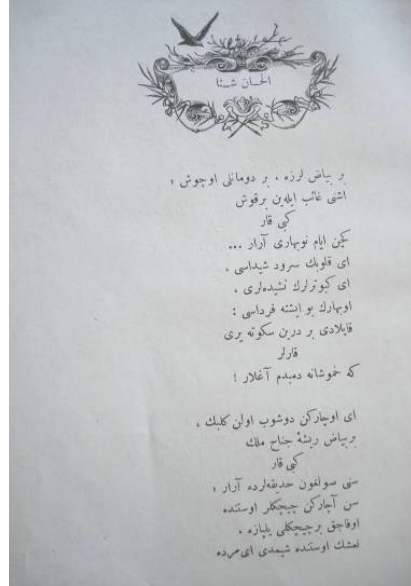 الحان شتا
بر بياض لرزه ، بر دومانلى اوچوش ؛
اشنى غائب ايله‌ين برقوش
كبى قار
كچن ايام نوبهارى آرار ...
اى قلوبك سرود شيداسى ،
اى كبوترلرك نشيده‌لرى ،
اوبهارك بو ايشته فرداسى :
قاپلادى بر درين سكوته يرى
قارلر
كه خموشانه دمبدم آغلار !
اى اوچاركن دوشوب اولن كلبك ،
بربياض ريشهٔ جناح ملك
كبى قار
سنى صولغون حديقه‌لرده آرار ،
سن آچاركن چيچكلر اوستنده
اوفاجق برچيچكلى يلپازه ،
نعشك اوستنده شيمدى اى مرده